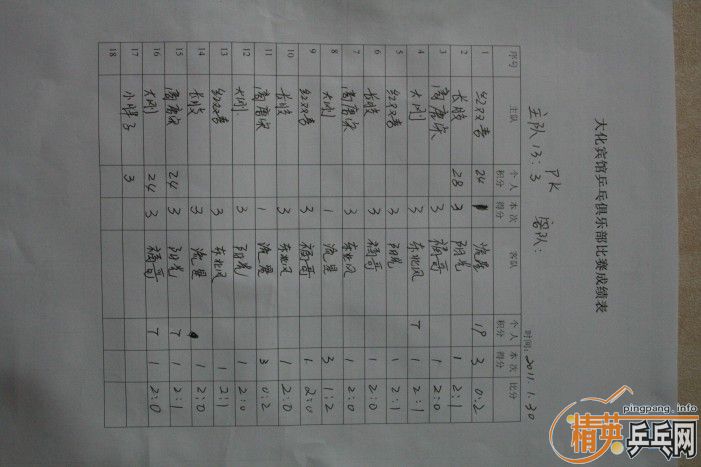 大化宾馆乒乓俱乐部比赛成绩表
主队 13:3 PK 客队:
时间: 2011 1.30
序号 主队 个人积分 本次得分 客队 个人积分 本次得分 比分
1 红双喜 24 1 流星 19 3 0:2
2 长胶 28 3 阳光 1 2:1
3 高唐宋 3 福哥 1 2:0
4 大刚 3 东北风 T 1 2:1
5 红双喜 3 阳光 1 2:1
6 长胶 3 福哥 1 2:0
7 高唐宋 3 东北风 1 2:0
8 大刚 1 流星 3 1:2
9 红双喜 3 福哥 1 2:0
10 长胶 3 东北风 1 2:0
11 高唐宋 1 流星 3 0:2
12 大刚 3 阳光 1 2:0
13 红双喜 3 东北风 1 2:1
14 长胶 3 流星 1 2:0
15 高唐宋 24 3 阳光 T 1 2:1
16 大刚 24 3 福哥 T 1 2:0
17 小胖子 3
18
pingpang.info
精英乒乓网